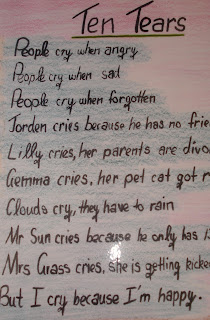 Ten Tears
People cry when angry
People cry when sad
People cry when forgotten
Jorden cries because he has no frie
Lilly cries, her parents are divo
Gemma cries, her pet cat got r
Clouds cry, they have to rain
Mr Sun cries because he only has
Mrs Grass cries, she is getting kicke
But I cry because I'm happy.